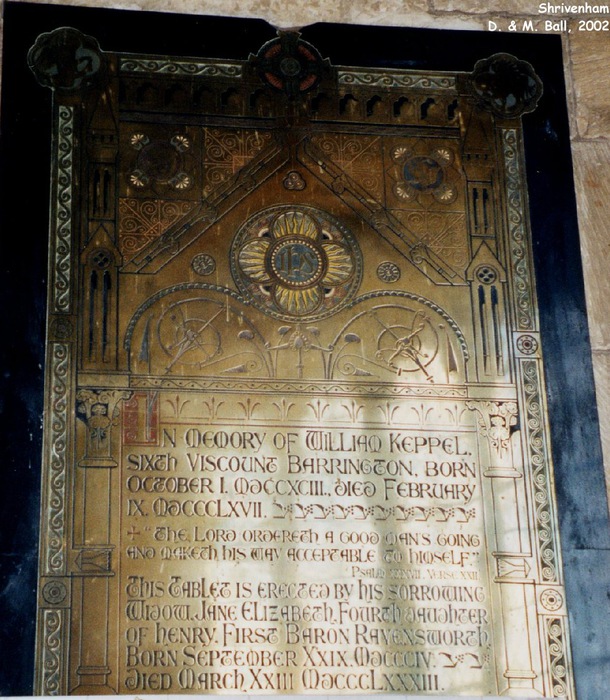 Shrivenham
D. & M. Ball, 2002
In Memory of William Keppel,
Sixth Viscount Barrington, Born
October 1, MDCCXCIII., Died February
IX. MDCCCLXVII.
+ "The Lord ordereth a good man's going
and maketh his way acceptable to himself."
Psalm XXXVII. Verse XXIII.
This Tablet is erected by his sorrowing
Widow, Jane Elizabeth, Fourth daughter
of Henry, First Baron Ravensworth.
Born September XXIX. MDCCCIV.
Died March XXIII MDCCCLXXXIII.